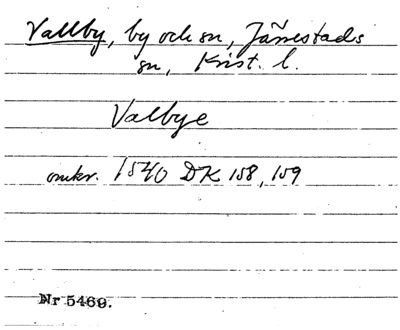 Vallby, by och sn, Järrestads
sn, Krist. l.
Valbye
omkr. 1540 DK 158, 159
Nr 5469.